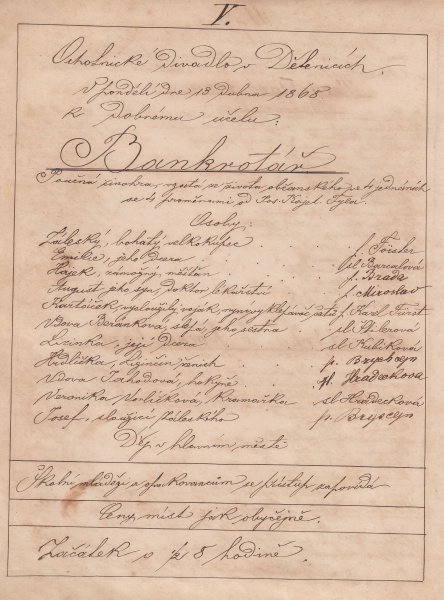 V.
Ochotnické divadlo v Dětenicích.
V pondělí dne 13 dubna 1868
k dobnému účelu:
Bankrotář
Původní živohra, vzatá ze života občanského ve 4 jednáních
se 4 proměnami od Jos. Kaj. Tyla.
Osoby:
Záleský, bohatý velkokupec . . . p. Förster
Emilie, jeho dcera . . . sl Barcalová
Hájek, zámožný měšťan . . . p. Brada
August, jeho syn, doktor lékařství . p. Miroslav
Kartáček, vysloužilý voják, nyní vyklejávač p. Karel Fürst
Vdova Beránkova, slepá jeho sestra . sl
Lizinka, jeji dcera . . . sl Kubíková
Hrdlička, Lizinčin ženich . . . p.
Vdova Jahodová, hokyně . . . pí. Hradecková
Veronika Voříšková, Kramářka . sl Hradecková
Josef, sloužící Záleského . . . p.
Děj v hlavním městě
Školní mládeži a opakovancům se přístup zapovídá
Ceny míst jak obyčejně.
Začátek o ½ 8 hodině.